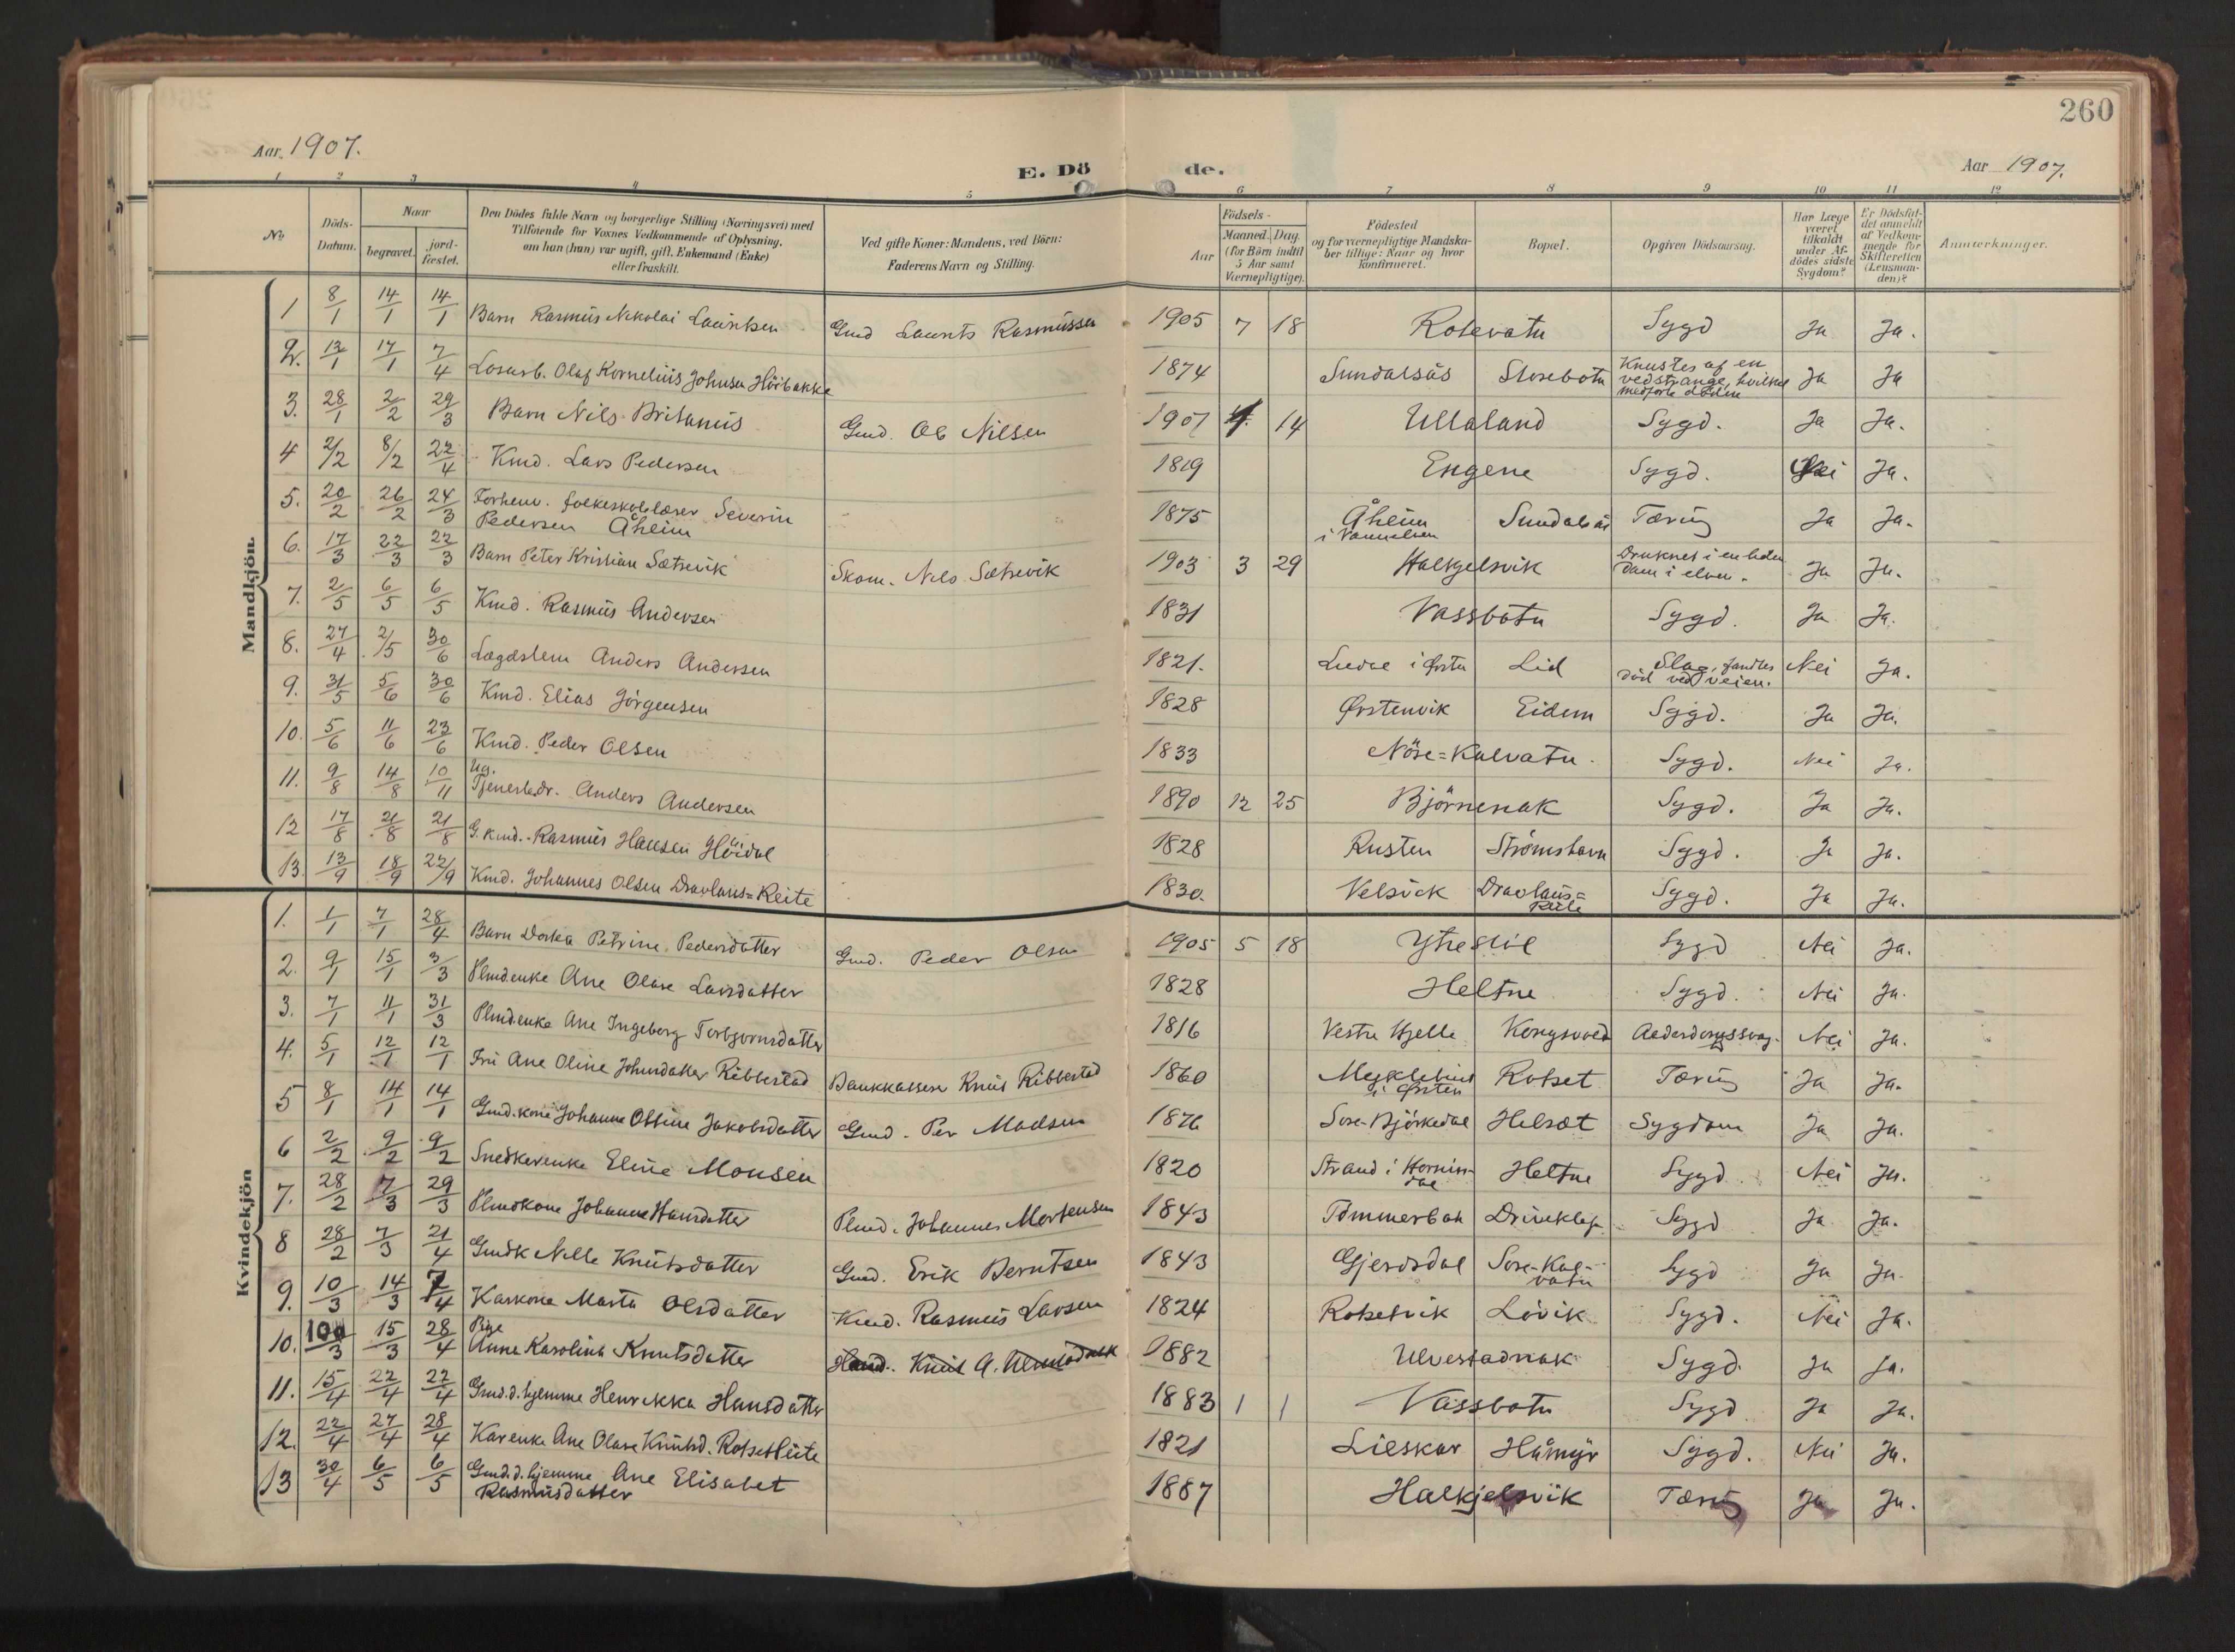 260
Aar 1907.
E. Dö
de.
Aar 1907.
1 2 3 4 5 6 7 8 9 10 11 12
No
Döds-Datum.
Naar
begravet.
jord-fæstet.
Den Dödes fulde Navn og borgerlige Stilling (Næringsvei) med Tilföiende for Voxnes Vedkommende af Oplysning, om han (hun) var ugift, gift, Enkemand (Enke) eller fraskilt.
Ved gifte Koner: Mandens, ved Börn: Faderens Navn og Stilling.
Födsels-
Aar
Maaned. Dag.
(for Börn indtil 5 Aar samt Værnepligtige).
Födested og for værnepligtige Mandskaber tillige: Naar og hvor konfirmeret.
Bopæl.
Opgiven Dödsaarsag.
Har Læge været tilkaldt under Afdödes sidste Sygdom?
Er Dödsfaldet anmeldt af Vedkommende for Skifteretten (Lensmanden)?
Anmærkninger.
Mandkjön.
1 8/1 14/1 14/1 Barn Rasmus Nikolai Lauritsen Gmd Laurits Rasmussen 1905 7 18 Rotevatn Sygd Ja Ja.
2. 13/1 17/1 7/4 Losarb. Olaf Kornelius Johnsen Höibakke 1874 Sundalsås Storebotn Knustes af en vedstrange, hvilket medførte døden Ja Ja
3. 28/1 2/2 29/3 Barn Nils Britanus Gmd. Ol Nilsen 1907 14 Ullaland Sygd. Ja Ja.
4 2/2 8/2 22/4 Kmd. Lars Pedersen 1819 Engene Sygd. Nei Ja.
5. 20/2 26/2 24/3 Forhenv. folkeskolelærer Severin Pedersen Åheim 1875 Åheim i Vannelven Sundalsås Tæring Ja Ja.
6. 17/3 22/3 22/3 Barn Peter Kristian Sætrevik Skom. Nils Sætrevik 1903 3 29 Halkjelsvik Druknet i en liden dam i elven. Ja Ja.
7. 2/5 6/5 6/5 Kmd. Rasmus Andersen 1831 Vassbotn Sygd. Ja Ja.
8. 27/4 2/5 30/6 Lægdslem Anders Andersen 1821. i Ørsten Lid Slag, fandtes död ved veien. Nei Ja.
9. 31/5 5/6 30/6 Kmd. Elias Jörgensen 1828 Ørstenvik Eidem Sygd. Ja Ja.
10. 5/6 11/6 23/6 Kmd. Peder Olsen 1833 Nöre=Kalvatn Sygd. Nei Ja.
11. 9/8 14/8 10/11 Ug. Tjenestedr. Anders Andersen 1890 12 25 Björnenak Sygd. Ja Ja.
12 17/8 21/8 21/8 G. Kmd. Rasmus Hansen Höidal 1828 Rusten Strömshavn Sygd. Ja Ja.
13. 13/9 18/9 22/9 Kmd. Johannes Olsen Dravlaus=Reite 1830. Velsvik Dravlaus=Reite Sygd. Ja Ja.
Kvindekjön
1. 1/1 7/1 28/4 Barn Dorka Petrine Pedersdatter Gmd. Peder Olsen 1905 5 18 Ytreslid Sygd Nei Ja.
2. 9/1 15/1 3/3 Plmdenke Ane Olave Larsdatter 1828 Heltne Sygd. Nei Ja.
3. 7/1 11/1 31/3 Plmdenke Ane Ingeborg Torbjornsdatter 1816 Vestre Hjelle Kongsvold Alderdomssvag. Nei Ja.
4. 5/1 12/1 12/1 Fru Ane Oline Johnsdatter Ribbestad Bankkasserer Knut Ribbestad 1860 Myklebust i Ørsten Rotset Tæring Ja Ja.
5 8/1 14/1 14/1 Gmd.kone Johanne Oline Jakobsdatter Gmd. Per Madsen 1876 Søre-Björkedal Helset Sygdom Ja Ja.
6 2/2 9/2 9/2 Snedkerenke Eline Monsen 1820 Strand i Hornindal Heltne Sygd. Nei Ja.
7. 28/2 7/3 29/3 Plmdkone Johanne Hansdatter Plmd. Johannes Mortensen 1843 Tömmerbak Driveklep Sygd Ja Ja.
8 28/2 7/3 21/4 Gmdk Nille Knutsdatter Gmd. Erik Berntsen 1843 Gjerdsdal Søre-Kalvatn Sygd Ja Ja.
9. 10/3 14/3 7/4 Kaarkone Marta Olsdatter Kmd. Rasmus Larsen 1824 Rotsetvik Løvik Sygd. Nei Ja.
10. 10/3 15/3 28/4 Pige Anne Karolina Knutsdatter 1882 Ulvestadnak Sygd. Ja Ja.
11. 15/4 22/4 22/4 Gmd.d. hjemme Henrikka Hansdatter 1883 1 1 Vassbotn Sygd Ja Ja.
12. 22/4 27/4 28/4 Kaarenke Ane Olave Knutsd. Rotsetreite 1821 Lieskar Håmyr Sygd. Nei Ja.
13 30/4 6/5 6/5 Gmd.d. hjemme Ane Elisabet Rasmusdatter 1887 Halkjelsvik Tæring Ja Ja.